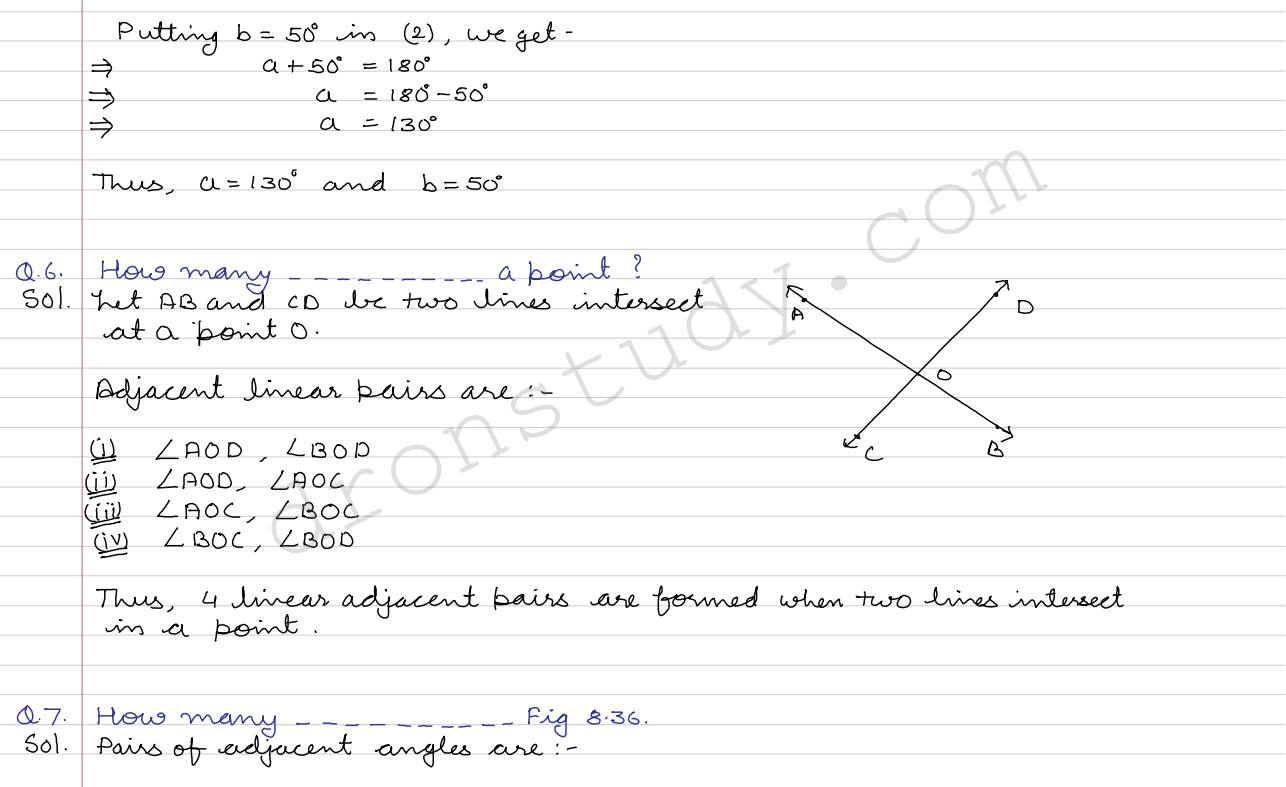 Putting b = 50° in (2), we get -
⇒ a + 50° = 180°
⇒ a = 180° - 50°
⇒ a = 130°
Thus, a = 130° and b = 50°
Q.6. How many __________ a point ?
Sol. Let AB and CD be two lines intersect
at a point O.
Adjacent linear pairs are :-
(i) ∠AOD, ∠BOD
(ii) ∠AOD, ∠AOC
(iii) ∠AOC, ∠BOC
(iv) ∠BOC, ∠BOD
A
D
O
C
B
Thus, 4 linear adjacent pairs are formed when two lines intersect
in a point.
Q.7. How many __________ Fig 8.36.
Sol. Pairs of adjacent angles are :-
dronstudy.com